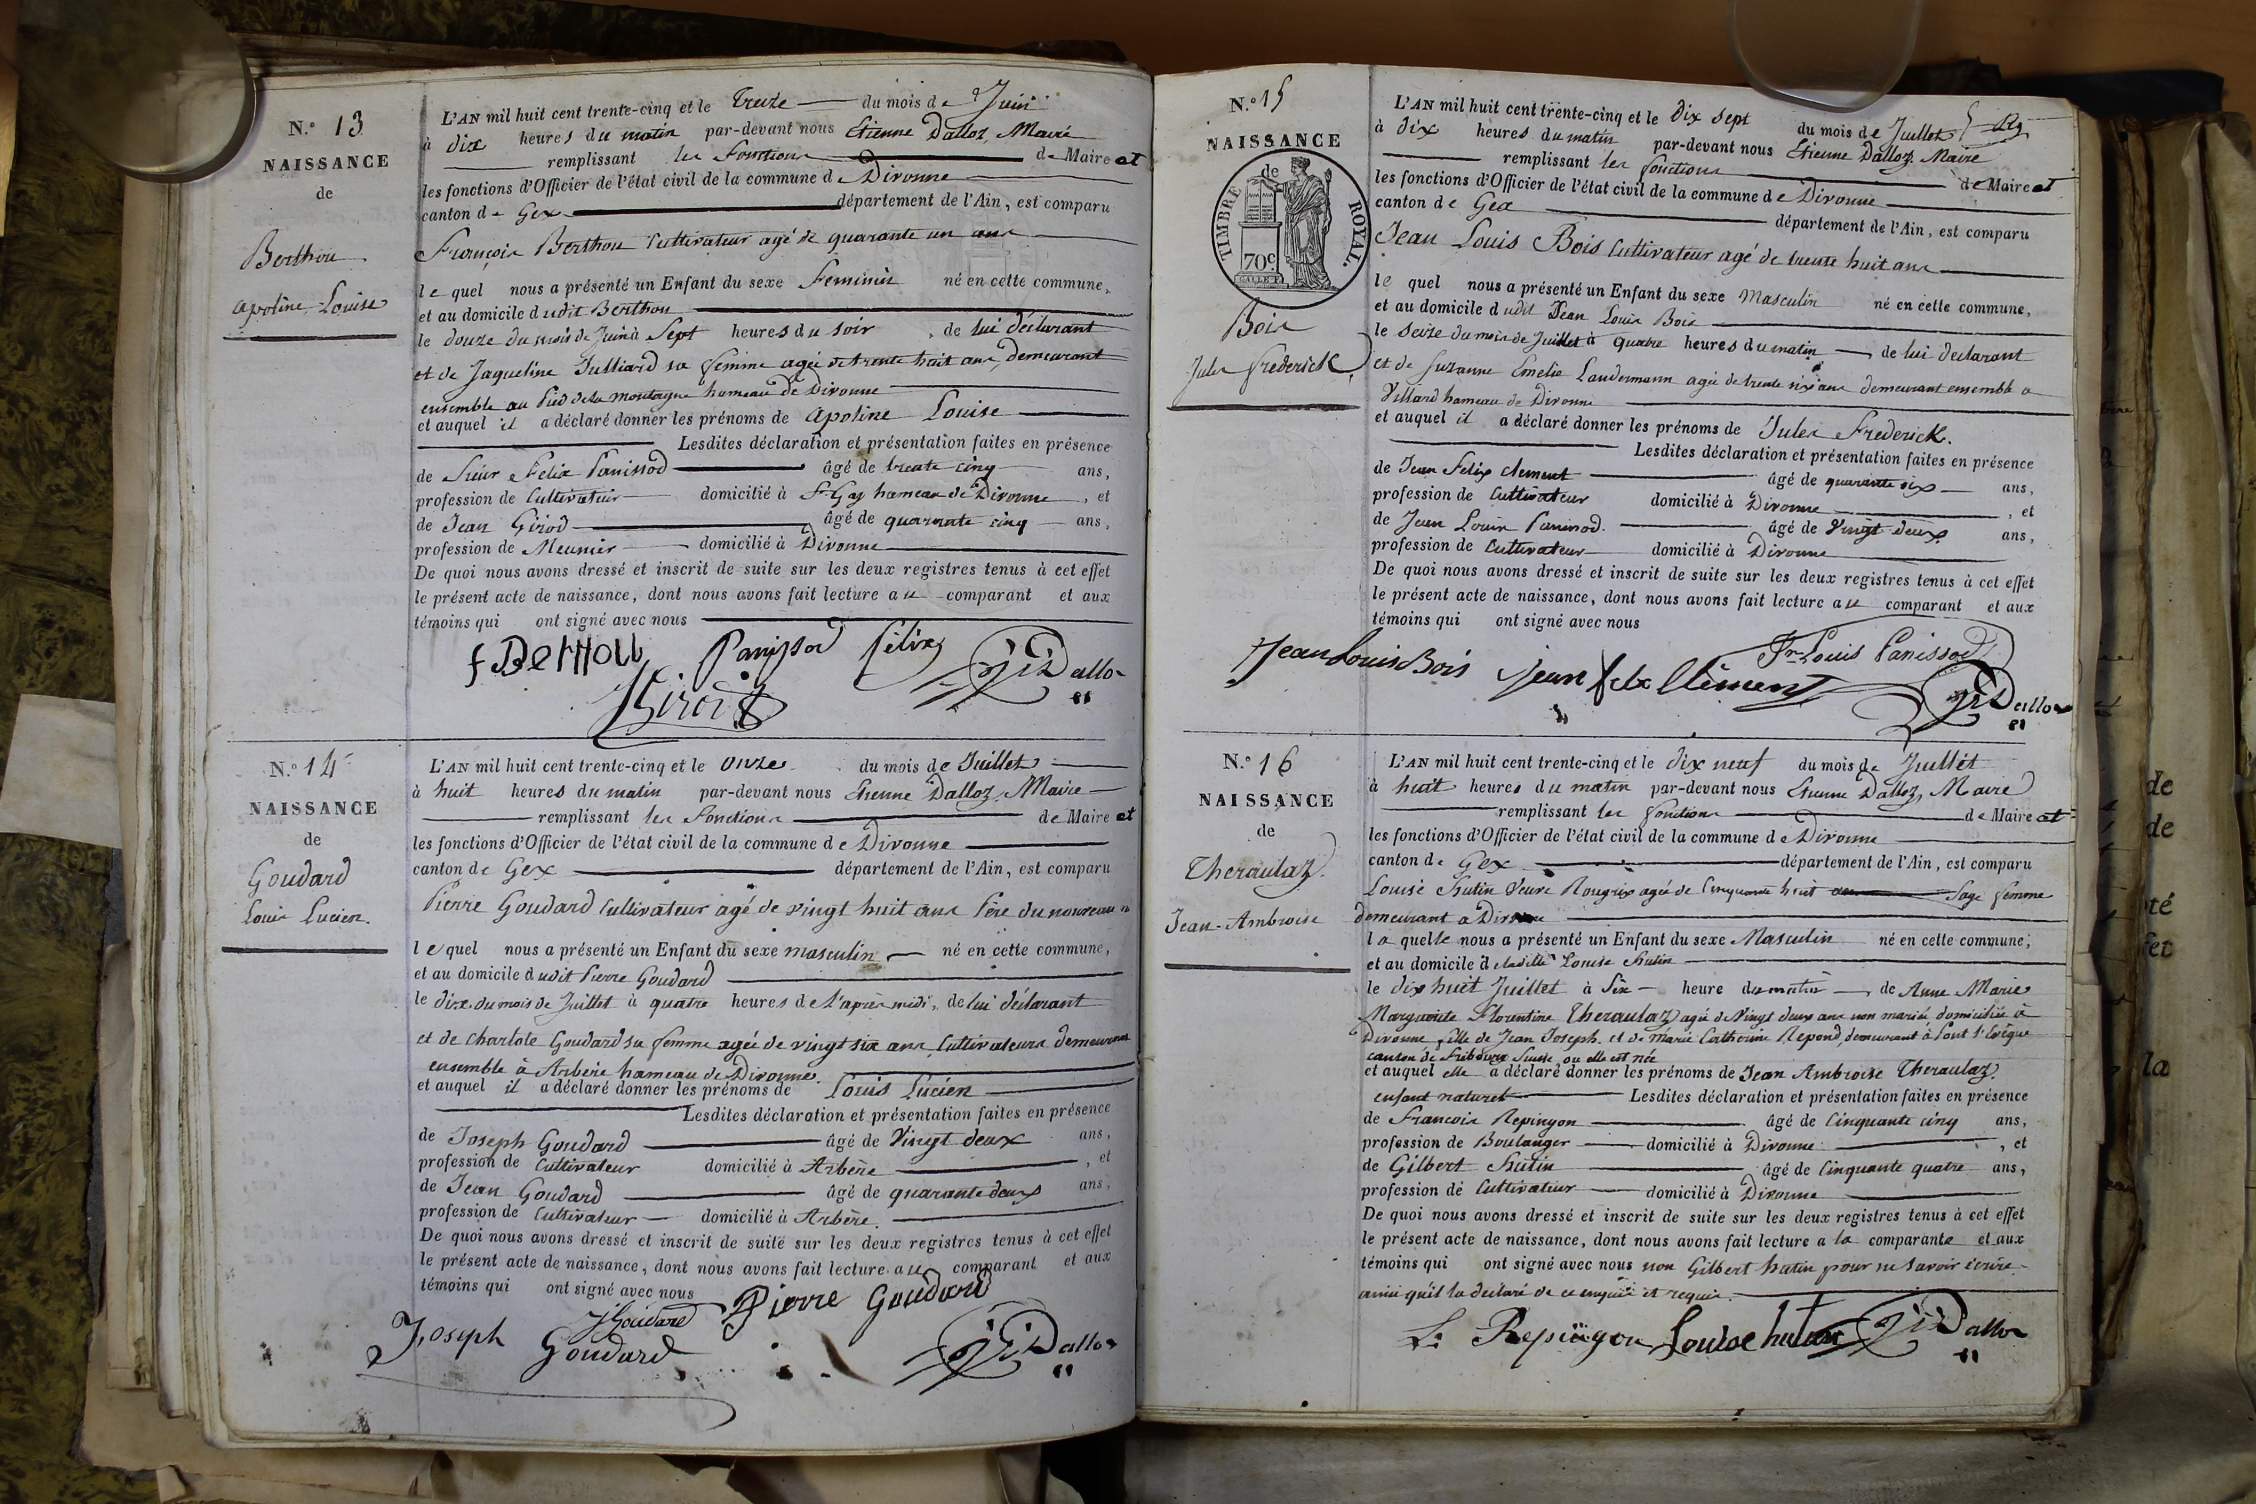 N.° 13
NAISSANCE
de
Berthou
apoline Louise
L'AN mil huit cent trente-cinq et le Treize du mois de Juin
à dix heures du matin par-devant nous Etienne Dalloz, Maire
remplissant les Fonctions de Maire et
les fonctions d'Officier de l'état civil de la commune de Divonne
canton de Gex département de l'Ain, est comparu
François Berthou Cultivateur agé de quarante un ans
le quel nous a présenté un Enfant du sexe Feminin né en cette commune,
et au domicile dudit Berthou
le douze du mois de Juin à Sept heures du soir, de lui déclarant
et de Jaqueline Julliard sa femme agée de trente huit ans, demeurant
ensemble au Pied de la montagne hameau de Divonne
et auquel il a déclaré donner les prénoms de apoline Louise
Lesdites déclaration et présentation faites en présence
de Sieur Felix Panissod âgé de trente cinq ans,
profession de Cultivateur domicilié à St Gix hameau de Divonne, et
de Jean Girod âgé de quarante cinq ans,
profession de Meunier domicilié à Divonne
De quoi nous avons dressé et inscrit de suite sur les deux registres tenus à cet effet
le présent acte de naissance, dont nous avons fait lecture au comparant et aux
témoins qui ont signé avec nous
f BertHou Panissod félix
Girod Dalloz
N.° 14
NAISSANCE
de
Goudard
Louis Lucien.
L'AN mil huit cent trente-cinq et le onze du mois de Juillet
à huit heures du matin par-devant nous Etienne Dalloz, Maire
remplissant les Fonctions de Maire et
les fonctions d'Officier de l'état civil de la commune de Divonne
canton de Gex département de l'Ain, est comparu
Pierre Goudard Cultivateur agé de vingt huit ans Père du nouveau n
le quel nous a présenté un Enfant du sexe masculin né en cette commune,
et au domicile dudit Pierre Goudard
le dix du mois de Juillet à quatre heures de l'après midi, de lui déclarant
et de Charlote Goudard sa femme agée de vingt six ans, Cultivateurs demeurant
ensemble à Arbère hameau de Divonne.
et auquel il a déclaré donner les prénoms de Louis Lucien
Lesdites déclaration et présentation faites en présence
de Joseph Goudard âgé de Vingt deux ans,
profession de Cultivateur domicilié à Arbère, et
de Jean Goudard âgé de quarante deux ans,
profession de Cultivateur domicilié à Arbère.
De quoi nous avons dressé et inscrit de suite sur les deux registres tenus à cet effet
le présent acte de naissance, dont nous avons fait lecture au comparant et aux
témoins qui ont signé avec nous
J Goudard Pierre Goudard
Joseph Goudard Dalloz
N.° 15
NAISSANCE
de
TIMBRE ROYAL.
70c
Bois
Jules Frederick
L'AN mil huit cent trente-cinq et le dix sept du mois de Juillet
à dix heures du matin par-devant nous Etienne Dalloz Maire
remplissant les fonctions de Maire et
les fonctions d'Officier de l'état civil de la commune de Divonne
canton de Gex département de l'Ain, est comparu
Jean Louis Bois Cultivateur agé de trente huit ans
le quel nous a présenté un Enfant du sexe Masculin né en cette commune,
et au domicile dudit Jean Louis Bois
le seize du mois de Juillet à quatre heures du matin de lui declarant
et de Suzanne Emelie Landermann agée de trente six ans demeurant ensemble a
Villard hameau de Divonne
et auquel il a déclaré donner les prénoms de Jules Frederick.
Lesdites déclaration et présentation faites en présence
de Jean Felix Clement âgé de quarante six ans,
profession de Cultivateur domicilié à Divonne, et
de Jean Louis Panissod. âgé de Vingt deux ans,
profession de Cultivateur domicilié à Divonne
De quoi nous avons dressé et inscrit de suite sur les deux registres tenus à cet effet
le présent acte de naissance, dont nous avons fait lecture au comparant et aux
témoins qui ont signé avec nous
Jean Louis Bois Jean felix Clement Jn Louis Panissod
Dalloz
N.° 16
NAISSANCE
de
Theraulaz.
Jean-Ambroise
L'AN mil huit cent trente-cinq et le dix neuf du mois de Juillet
à huit heures du matin par-devant nous Etienne Dalloz, Maire
remplissant les fonctions de Maire et
les fonctions d'Officier de l'état civil de la commune de Divonne
canton de Gex département de l'Ain, est comparu
Louise hutin Veuve agée de Cinquante huit ans Sage femme
demeurant a Divonne
la quelle nous a présenté un Enfant du sexe Masculin né en cette commune;
et au domicile de ladite Louise hutin
le dix huit Juillet à Six heure du matin, de Anne Marie
Marguerite Florentine Theraulaz agée de Vingt deux ans non mariée domiciliée à
Divonne, fille de Jean Joseph et de Marie Catherine Repond, demeurant à Pont l'Evêque
canton de Fribourg Suisse ou elle est née
et auquel elle a déclaré donner les prénoms de Jean Ambroise Theraulaz.
enfant naturel Lesdites déclaration et présentation faites en présence
de François Repingon âgé de Cinquante cinq ans,
profession de Boulanger domicilié à Divonne, et
de Gilbert hutin âgé de Cinquante quatre ans,
profession de Cultivateur domicilié à Divonne
De quoi nous avons dressé et inscrit de suite sur les deux registres tenus à cet effet
le présent acte de naissance, dont nous avons fait lecture a la comparante et aux
témoins qui ont signé avec nous non Gilbert hutin pour ne savoir écrire
ainsi qu'il la déclaré de ce enquis et requis.
Repingon Louise hutin Dalloz